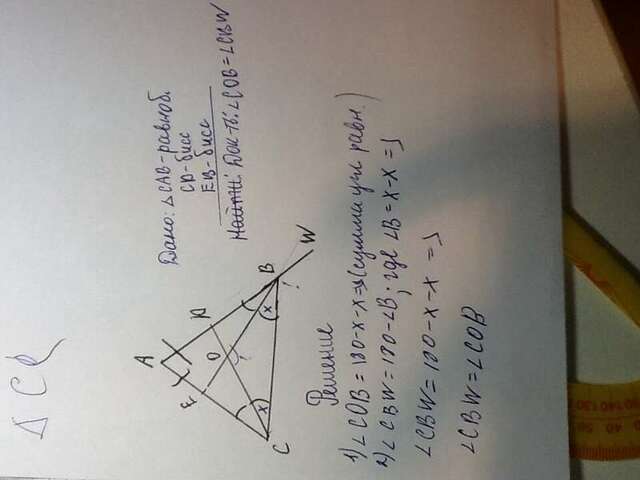 △ CA
Дано: △CAB - равноб.
CD - бисс
EB - бисс
Найти: Док-ть: ∠COB = ∠CBW
C
E
A
O
D
B
W
x
x
?
?
Решение
1) ∠COB = 180-x-x = (сумма угл равн.)
2) ∠CBW = 180-∠B, где ∠B = x-x =
∠CBW = 180-x-x =
∠CBW = ∠COB
40 50
140 130